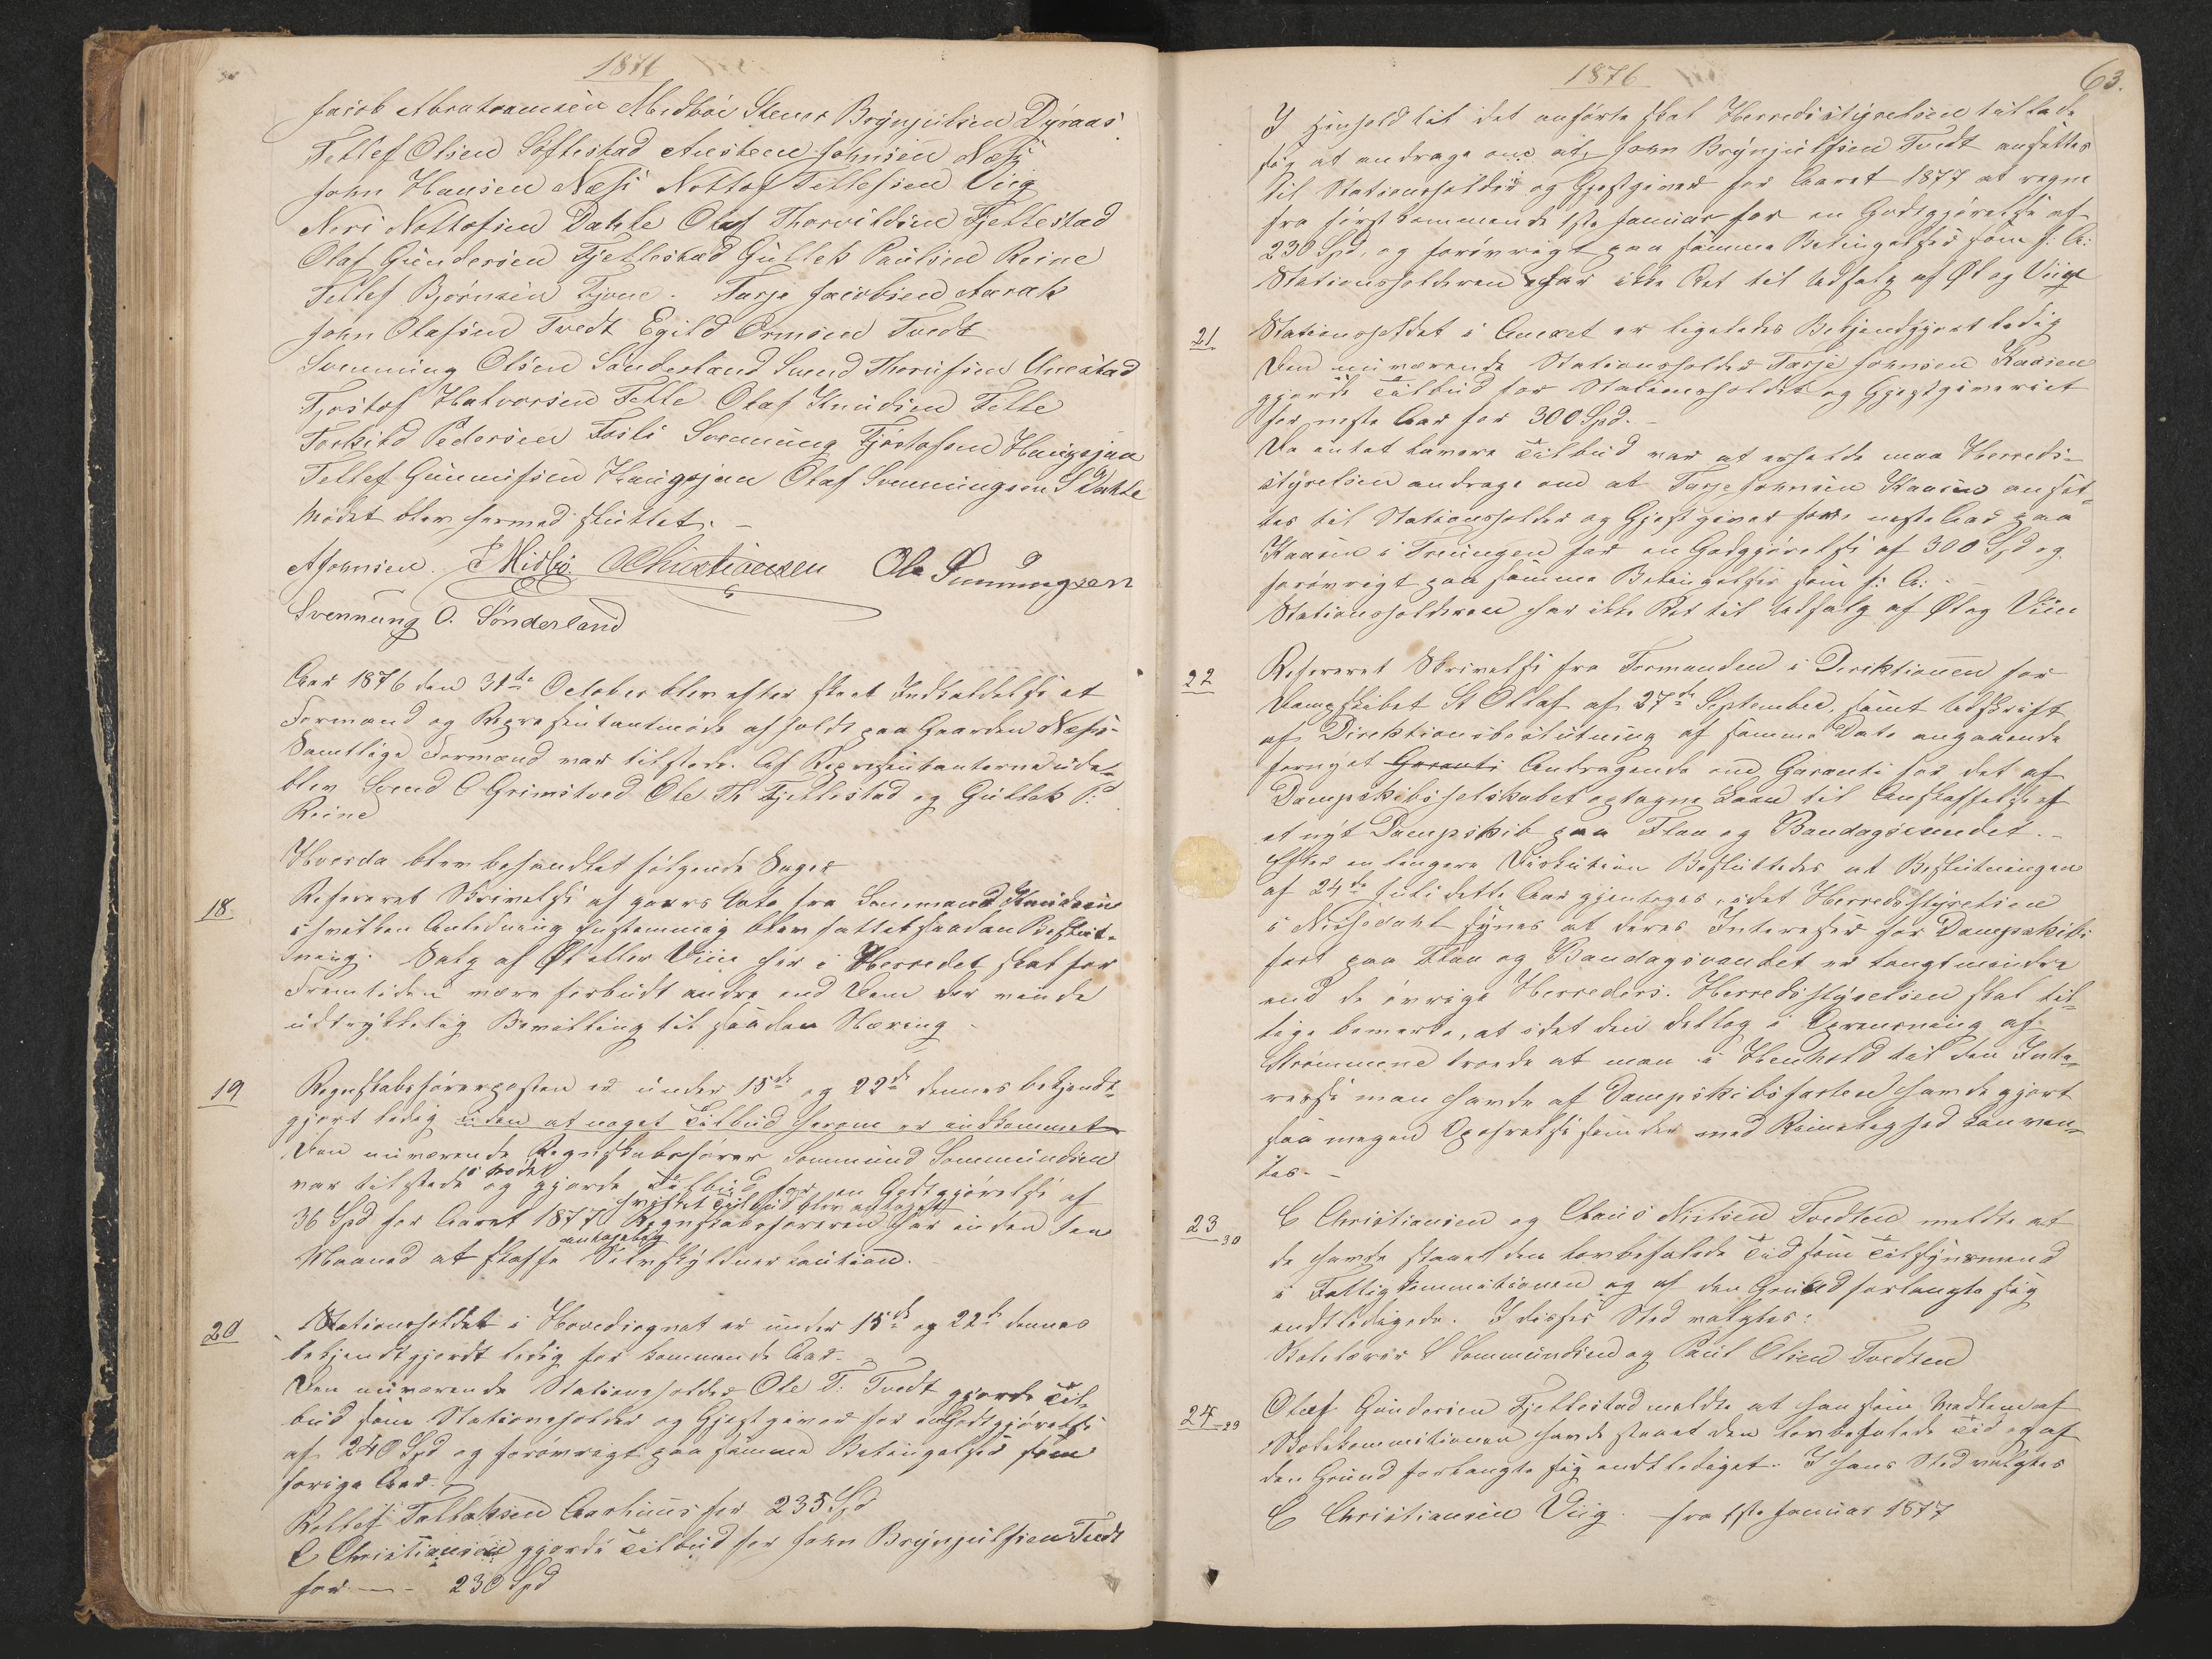 1876
Jacob Abrahamsen Midbøe Stener Brynjulsen Dyraas
Tellef Olsen Løftestad Austene Johnsen Næss
John Hansen Næss Nottof Tellefsen Viig
Neri Nottofsen Dahle Olaf Thorvildsen Fjellestad
Olaf Gundersen Fjellestad Gullek Paulsen Reine
Tellef Bjørnsen Tjøne. Tarje Jacobsen Aarak
John Olafsen Tvedt Egild Ormsen Tvedt
Svenning Olsen Sønderland Svend Thorvesen Unestad
Tjøstof Halvorsen Felle Olaf Knudsen Felle
Torkild Pedersen Fosli Svennung Tjøstofsen Haugsjaa
Tellef Gunnufsen Haugsjaa Olaf Svenningsen Dahle
Mødet blev hermed sluttet. –
AJohnsen. J Midbø CChristiansen Ole Svenningsen
Svennung O. Sønderland
Aar 1876 den 31te October blev efter skeet Indkaldelse et
Formand og Representantmøde afholdt paa Gaarden Næss.
Samtlige Formænd var tilstede. Af Representanterne ude-
blev Svend O Grimstved Ole Th Fjellestad og Gullek P:
Reine
Hvorda blev behandlet følgende Sager
18 Refereret Skrivelse af gaars Dato fra Lensmand Knudsen
i hvilken Anledning enstemmig blev fattet saadan Beslut-
ning. Salg af Øl eller Viin her i Herredet skal for
Fremtiden være forbudt andre end Dem der have
udtrykkelig Bevilling til saadan Næring.
19 Regnskabsførerposten er under 15de og 22de dennes bekjendt-
gjort ledig uden at noget Tilbud herom er indkommet
Den nuværende Regnskabsfører Sommund Sommundsen
var tilstede i Mødet og gjorde Tilbud for en Godtgjørelse af
36 Spd for Aaret 1877 hvilket Tilbud blev antaget Regnskabsføreren har inden 1en
Maaned at skaffe antagelig Selvskyldnerkaution.
20 Stationsholdet i Hovedsognet er under 15de og 22de dennes
bekjendtgjordt ledig for kommende Aar. –
Den nuværende Stationsholder Ole T: Tvedt gjorde Til-
bud som Stationsholder og Gjestgiver for en Godtgjørelse
af 240 Spd og forøvrigt paa samme Betingelser som
forige Aar. –
Rollef Tallaksen Aarhuus for 235 Spd
C Christiansen gjorde Tilbud for John Brynjulfsen Tvedt
for — – 230 Spd
1876
63.
I Henhold til det anførte skal Herredsstyrelsen tillade
sig at andrage om at John Brynjulfsen Tvedt ansættes
til Stationsholder og Gjestgiver for Aaret 1877 at regne
fra førstkommende 1ste Januar for en Godtgjørelse af
230 Spd, og forøvrigt paa samme Betingelser som f: A:
Stationsholderen har ikke Ret til Udsalg af Øl og Viin
21 Stationsholdet i Anexet er ligeledes Bekjendtgjort ledig
Den nuværende Stationsholder Tarje Johnsen Kaasen
gjorde Tilbud for Stationsholdet og Gjestgiveriet
for neste Aar for 300 Spd. –
Da intet lavere Tilbud var at erholde maa Herreds-
styrelsen andrage om at Tarje Johnsen Kaasen ansæt-
tes til Stationsholder og Gjestgiver for neste Aar paa
Kaasen i Treungen for en Godtgjørelse af 300 Spd og
forøvrigt paa samme Betingelser som f: A: –
Stationsholderen har ikke Ret til Udsalg af Øl og Viin
22 Refereret Skrivelse fra Formanden i Direktionen for
Dampskibet St Ollaf af 27de September, samt Udskrift
af Direktionsbeslutning af samme Dato angaaende
fornyet Garanti Andragende om Garanti for det af
Dampskibsselskabet optagne Laan til Anskaffelse af
et nyt Dampskib paa Flaa og Bandagsvandet. –
Efter en længere Diskution Besluttedes at Beslutningen
af 24de Juli dette Aar gjentages, idet Herredsstyrelsen
i Nissedahl synes at deres Interesser for Dampskibs-
fart paa Flaa og Bandagsvandet er langt mindre
end de øvrige Herreders. Herredsstyrelsen skal til-
lige bemerke, at idet den deltog i Oprensning af
Strømmene troede at man i Henhold til den Inte-
resse man havde af Dampskibsfarten havde gjort
saa megen Opofrelse som der med Rimelighed kan ven-
tes. –
23 30 C Christiansen og Claus Nielsen Tvedten meldte at
de havde staaet den lovbefalede Tid som Tilsynsmend
i Fattigkommitionen og af den Grund forlangte sig
endtledigede. I disses Sted valgtes:
Skolelærer S Sommundsen og Paul Olsen Tvedten
24 29 Olaf Gundersen Fjellestad meldte at han som Medlem af
Skolekommitionen havde staaet den lovbefalede Tid og af
den Grund forlangte sig endtlediget. I hans Sted valgtes
C Christiansen Viig. fra 1ste Januar 1877